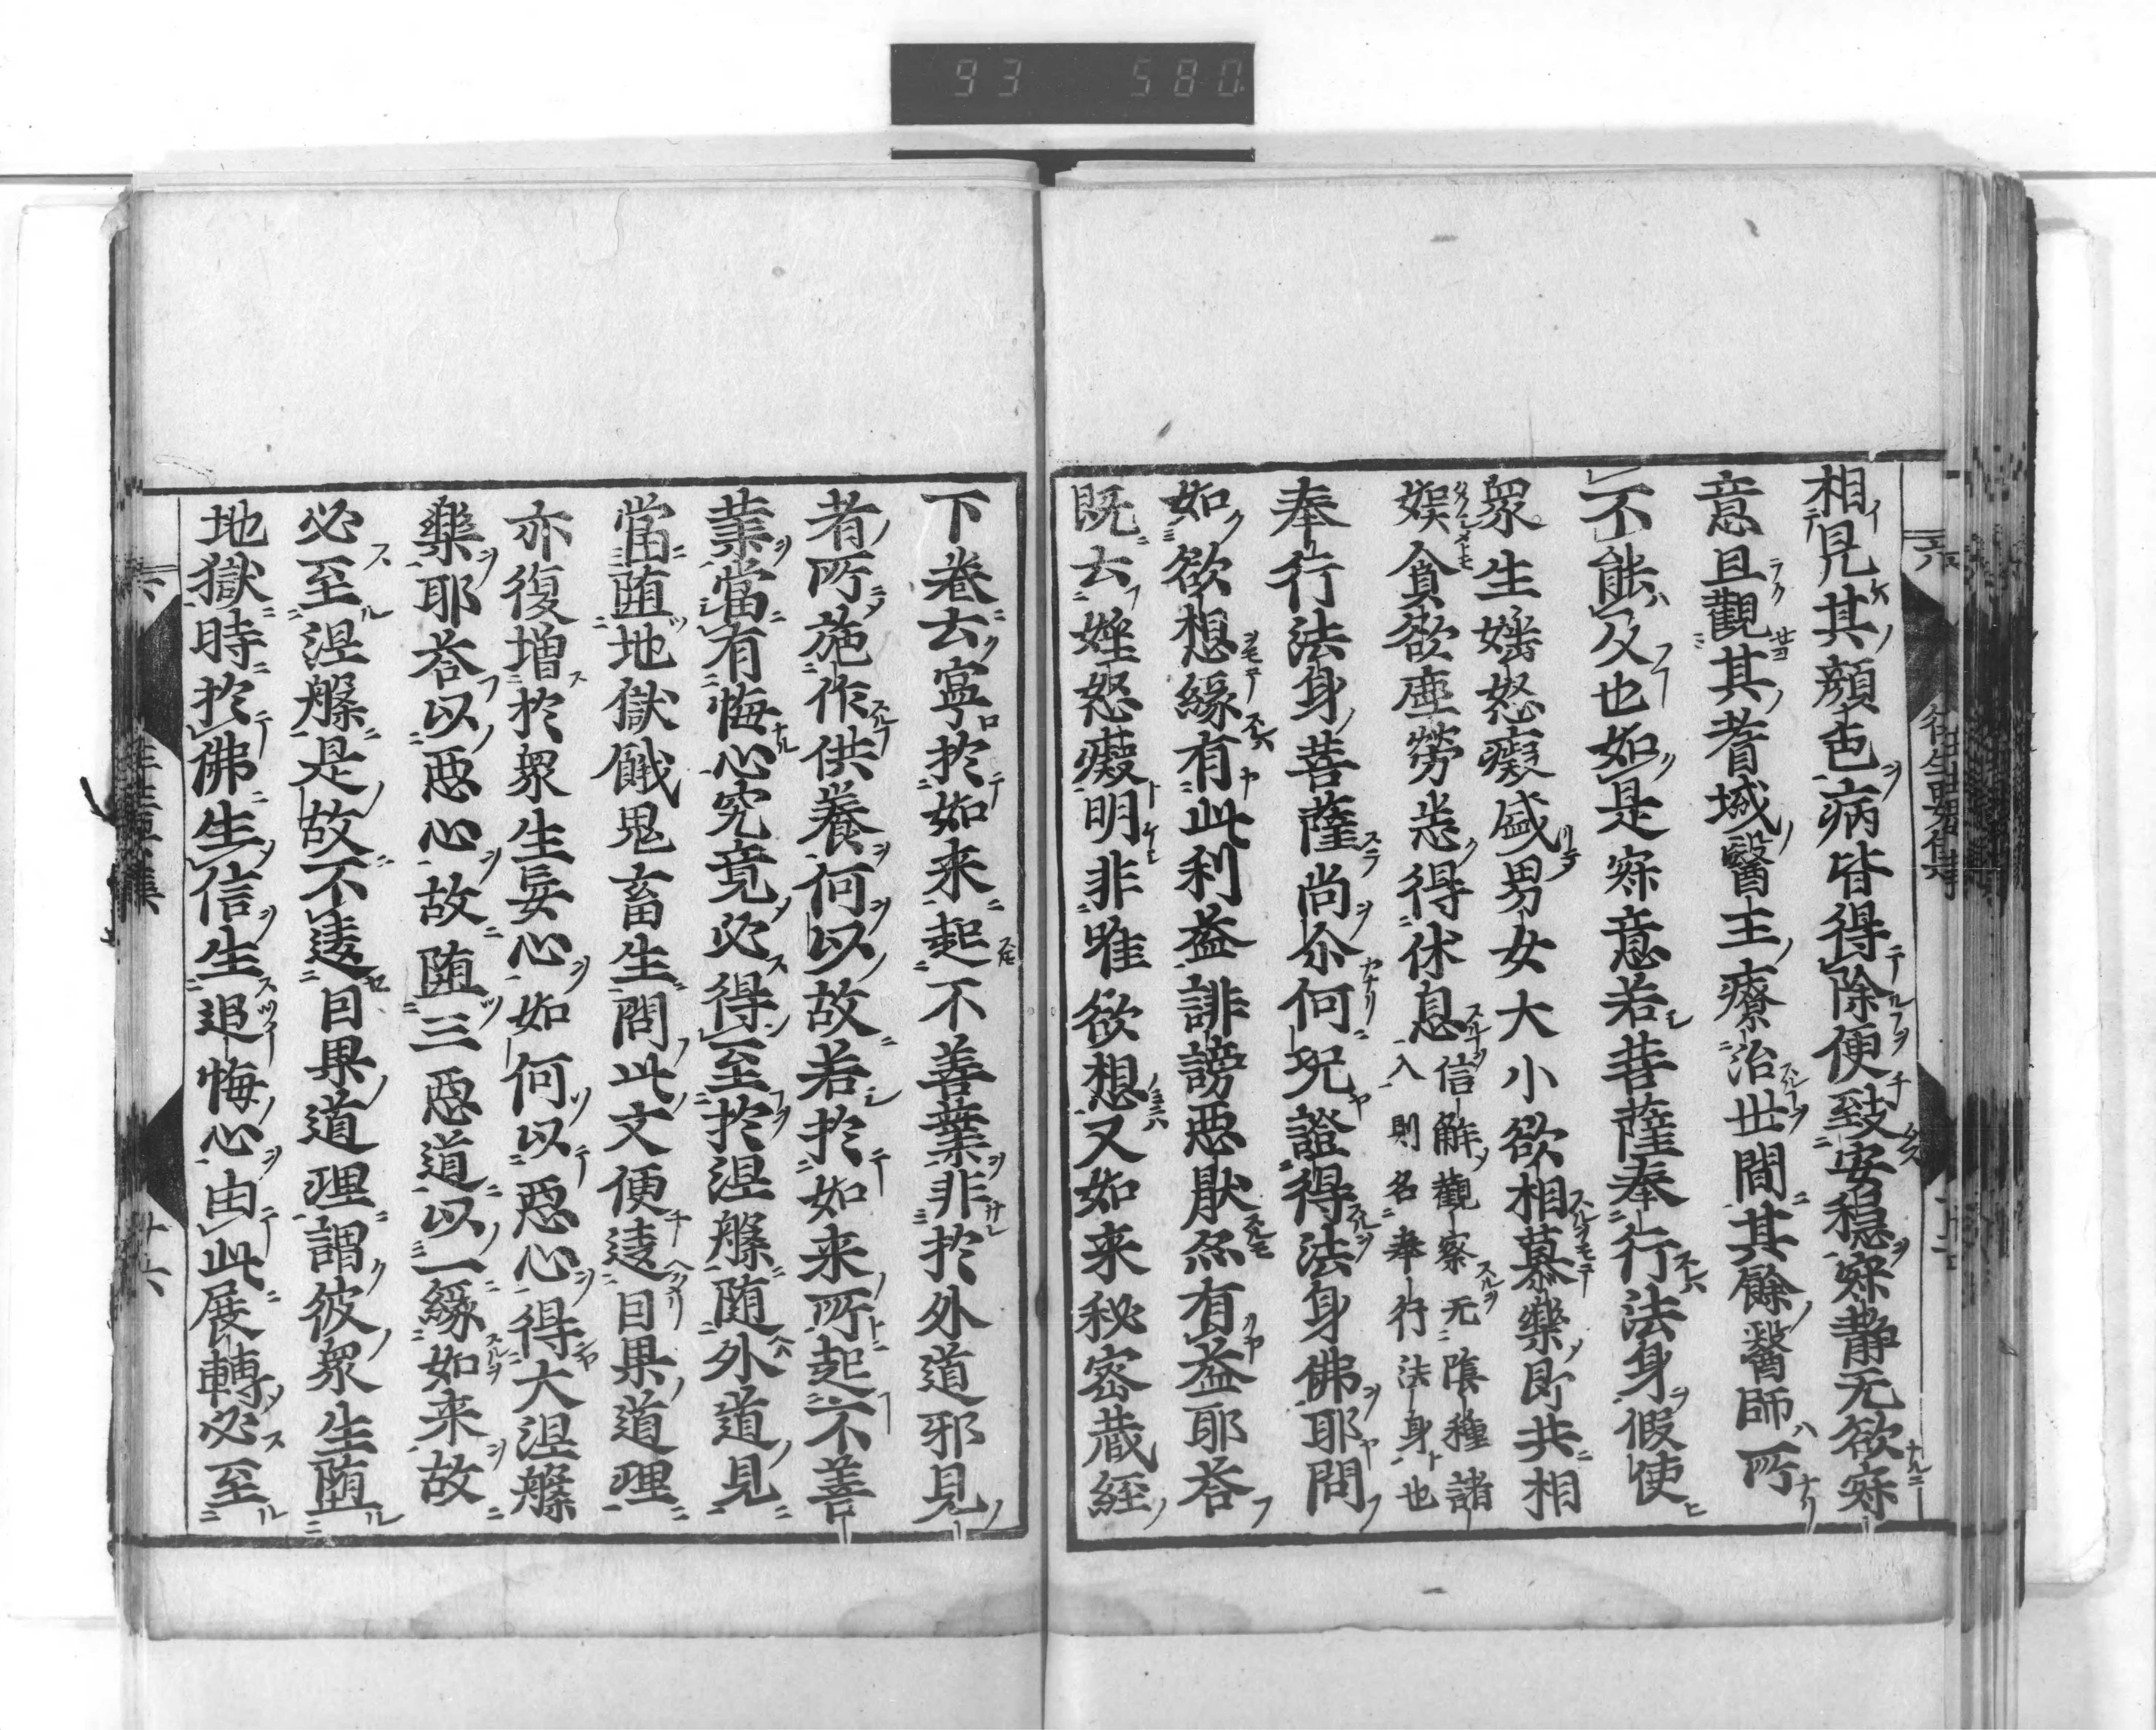 93 580
相見其顔色病皆得除便致安穏寂静无欲寂
意且觀其耆域醫王療治世間其餘醫師所
不能及也如是寂意若菩薩奉行法身假使
衆生婬怒癡盛男女大小欲相慕樂即共相
娯貪欲塵勞悉得休息信解觀察无陰種諸
入則名奉行法身也
奉行法身菩薩尚尒何況證得法身佛耶問
如欲想縁有此利益誹謗悪厭亦有益耶答
既云婬怒癡明非唯欲想又如来秘密蔵経
下巻云寧於如来起不善業非於外道邪見
者所施作供養何以故若於如来所起不善
業當有悔心究竟必得至於涅槃随外道見
當堕地獄餓鬼畜生問此文便違因果道理
亦復増於衆生妄心如何以悪心得大涅槃
樂耶答以悪心故堕三悪道以一縁如来故
必至涅槃是故不違因果道理謂彼衆生堕
地獄時於佛生信生追悔心由此展轉必至